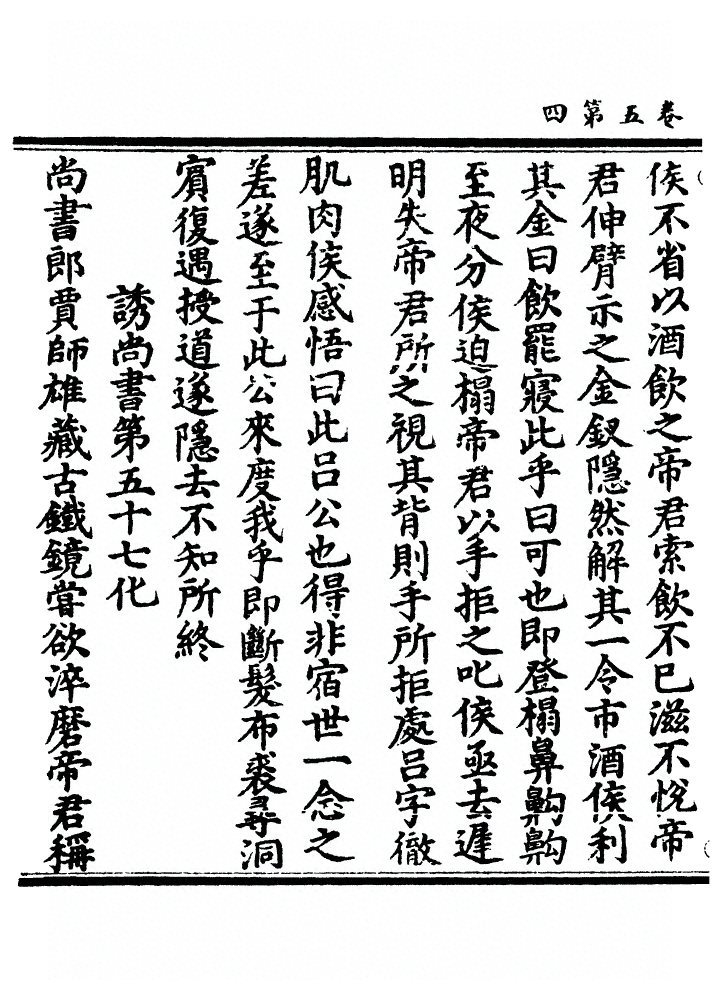 卷五第四
侯不省以酒飲之帝君索飲不已滋不悅帝
君伸臂示之金釵隱然解其一令市酒侯利
其金曰飲罷寢此乎曰可也即登榻鼻齁齁
至夜分侯迫榻帝君以手拒之叱侯亟去遲
明失帝君所之視其背則手所拒處呂字徹
肌肉侯感悟曰此呂公也得非宿世一念之
差遂至于此公來度我乎即斷髮布裘尋洞
賓復遇授道遂隱去不知所終
誘尚書第五十七化
尚書郎賈師雄藏古鐵鏡嘗欲淬磨帝君稱